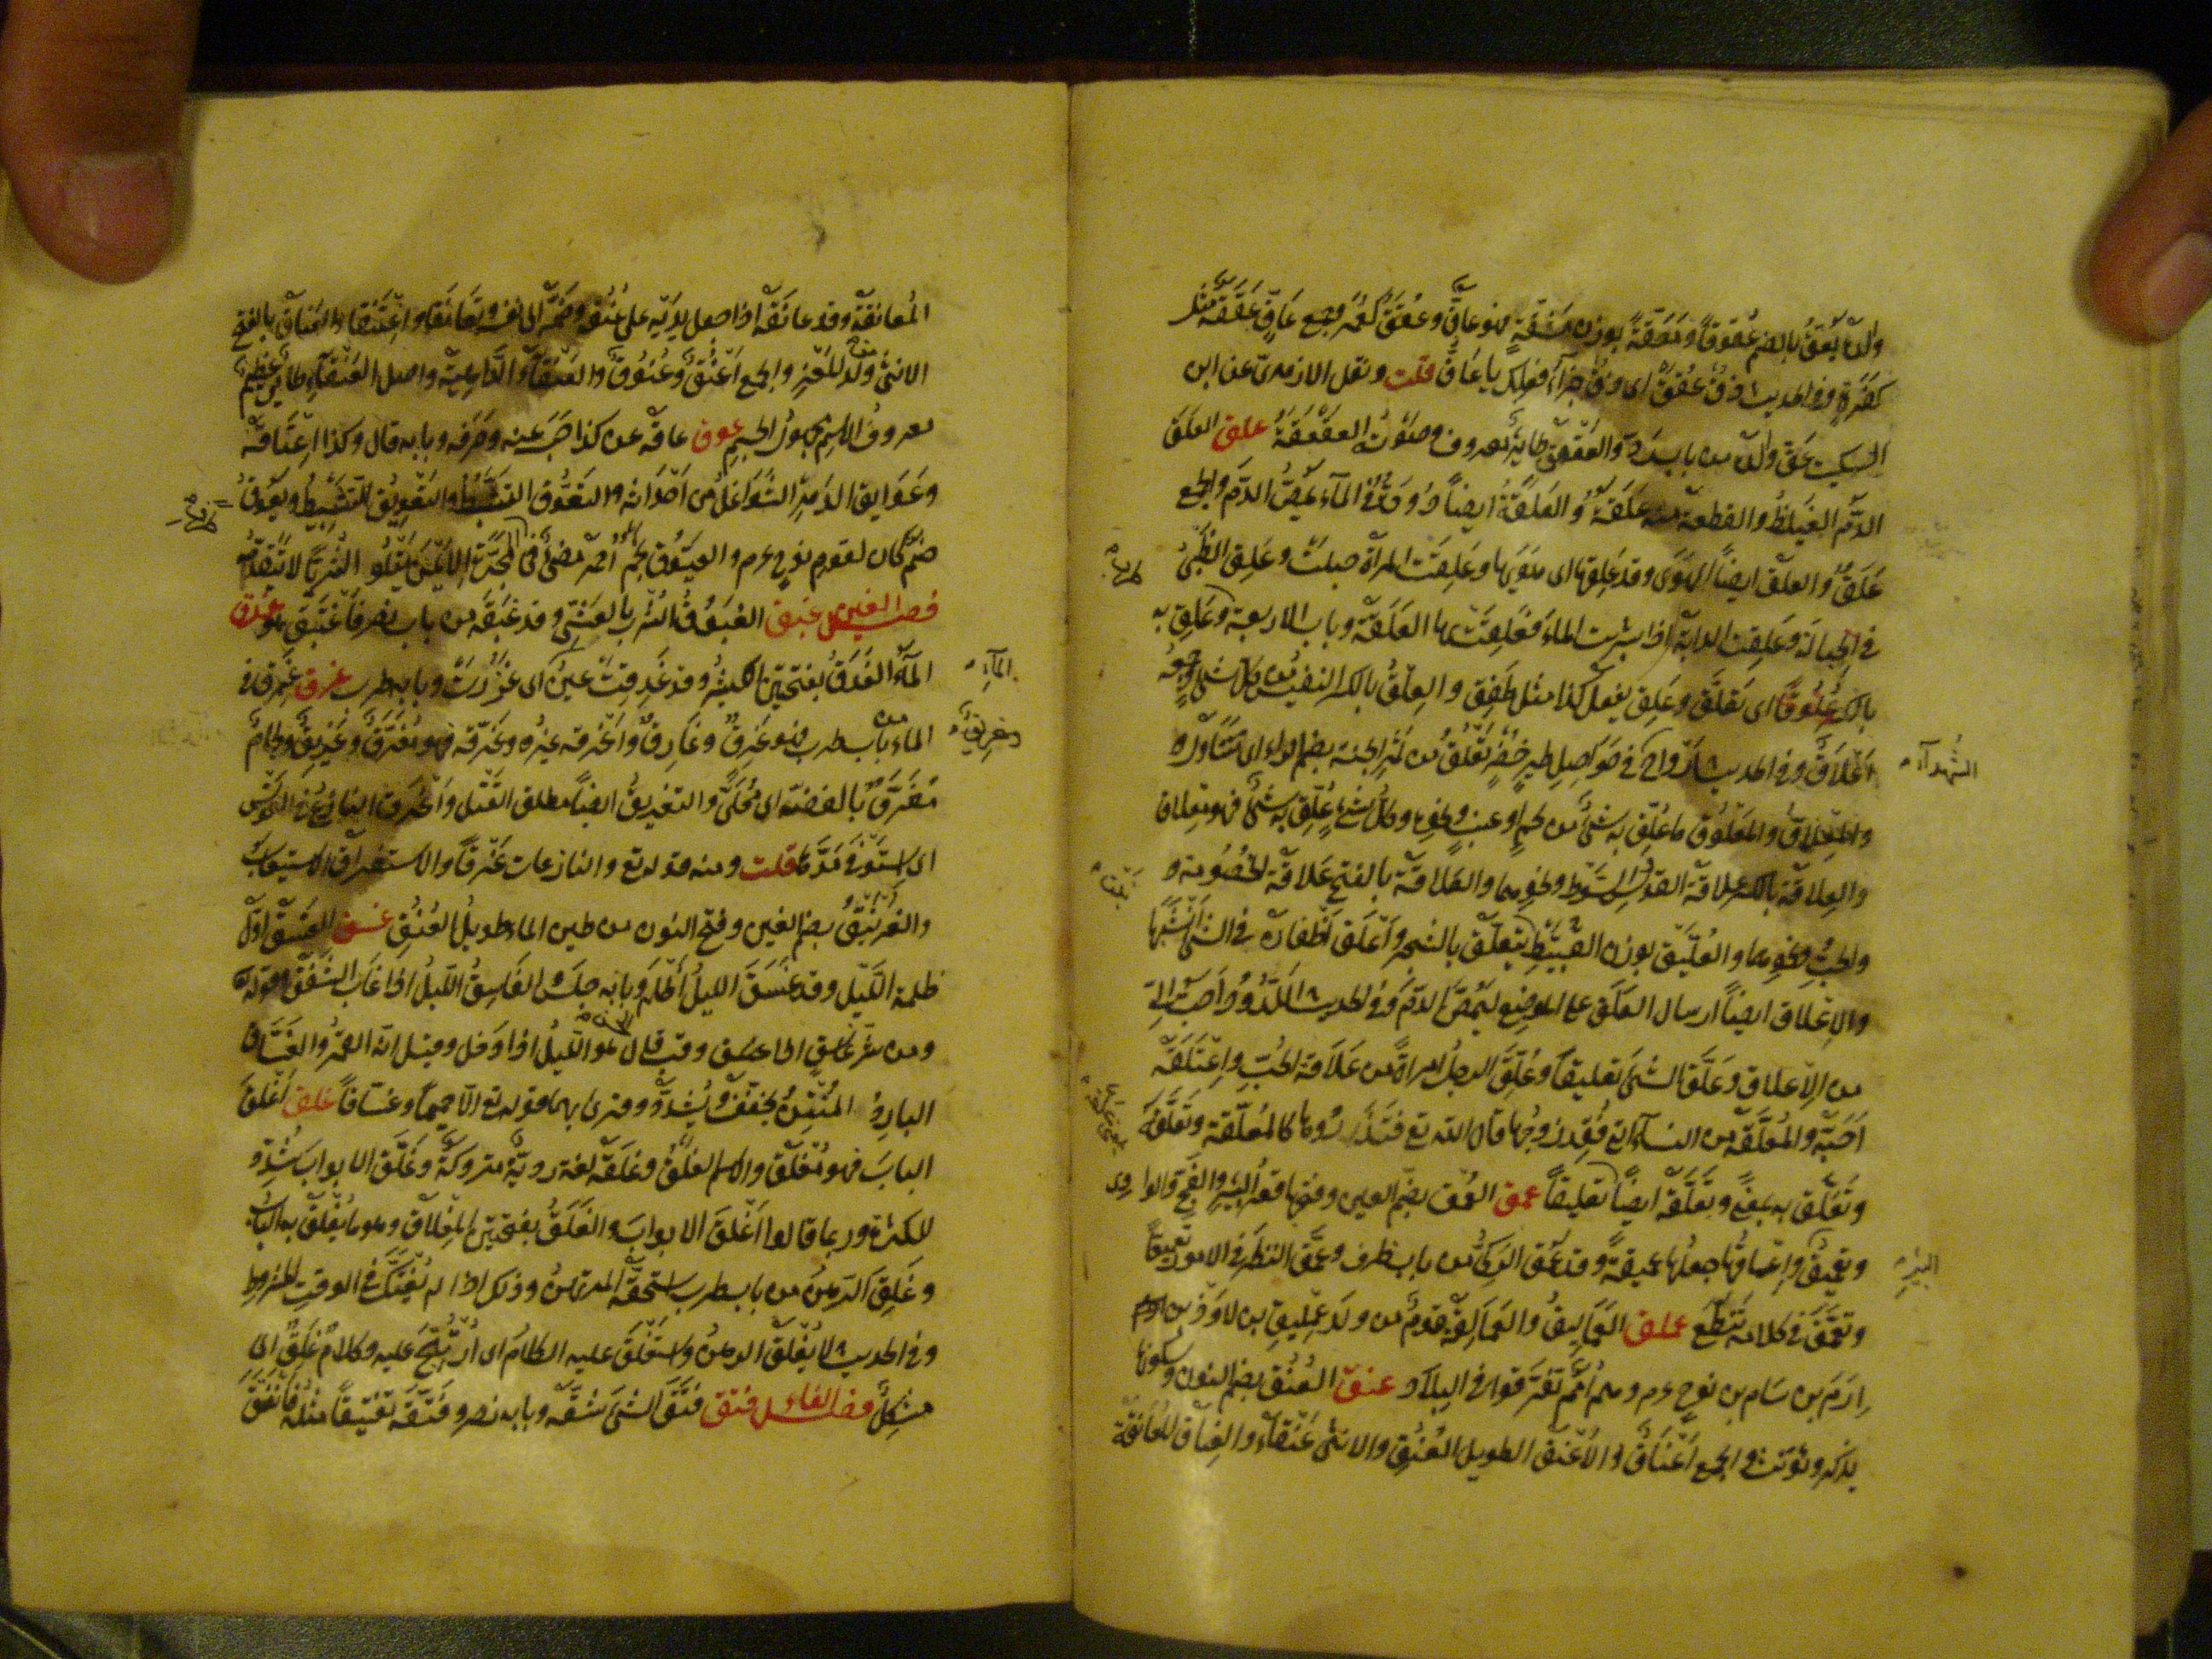 والده يعق بالضم عقوقا ومعقة بوزن مشقة فهو عاق وعقق كعمر وجمع عاق عققة مثل
كفرة وفي الحديث ذق عقق اى ذق جزآء فعلك يا عاق قلت ونقل الازهرى عن ابن
السكيت عق والده من باب رد والعقعق طاير معروف وصوته العقعقة علق العلق
الدم الغليظ والقطعة منه علقة والعلقة ايضا دودة في المآء تمص الدم والجمع
علق والعلق ايضا الهوى وقد علقها اى هويها وعلقت المرآة حبلت وعلق الظبى
في الحبالة وعلقت الدابة اذا شربت الماء فعلقت بها العلقة وباب الاربعة وعلق به
بالكسر علوقا اى تعلق وعلق يفعل كذا مثل طفق والعلق بالكسر النفيس من كل شئ وجمعه
اعلاق وفي الحديث ارواح في حواصل طير خضر تعلق من ثمر الجنة بضم اللام اى تتناول
الشهدآء
والمعلاق والمعلوق ما علق به شئ من لحم او عنب ونحوه وكل شئ علق به شئ فهو معلاقه
والعلاقة بالكسر علاقة القوس والسوط ونحوهما والعلاقة بالفتح علاقة الخصومة و
والحب ونحوهما والعليق بوزن القبيط نبت يتعلق بالشجر واعلق اظفاره في الشئ انشبها
والاعلاق ايضا ارسال العلق على الموضع ليمص الدم وفي الحديث اللدود احب الى
من الاعلاق وعلق الشئ تعليقا وعلق الرجل امراة من علاقة الحب واعتلقه
احبه والمعلقة من النسآء التى فقد زوجها قال الله تع فتذروها كالمعلقة وتعلقه
وتعلق به بمعنى وتعلقه ايضا تعليقا عمق العمق بضم العين وفتحها قعر البئر والفج والوادى
وتعميق البئر واعماقها جعلها عميقة وقد عمق الركى من باب ظرف وعمق النظر في الامور تعميقا
وتعمق في كلامه تنطع عملق العماليق والعمالقة قوم من ولد عمليق بن لاوذ بن
ارم بن سام بن نوح عم وهم امم تفرقوا في البلاد عنق العنق بضم النون وسكونها
يذكر ويؤنث والجمع اعناق والاعنق الطويل العنق والانثى عنقآء والعناق المعانقة
المعانقة وقد عانقه اذا جعل يديه على عنقه وضمه الى نفسه وتعانقا واعتنقا والعناق بالفتح
الانثى من ولد المعز والجمع اعنق وعنوق والعنقآء الداهية واصل العنقآء طاير عظيم
معروف الاسم مجهول الجسم عوق عاقه عن كذا حبسه عنه وصرفه وبابه قال وكذا اعتاقه
وعوايق الدهر الشواغل من احداثه والتعوق التثبط والتعويق التثبيط ويعوق
صنم كان لقوم نوح عم والعيوق نجم احمر مضئ في طرف المجرة الايمن يتلو الثريا لا يتقدمه
فصل الغين غبق الغبوق الشرب بالعشى وقد غبقه من باب نصر فاغتبق هو غدق
المآء الغدق بفتحتين الكثير وقد غدقت عين المآء اى غزرت وبابه طرب غرق غرق في
الماء من باب طرب فهو غرق وغارق واغرقه غيره وغرقه فهو مغرق وغريق ولجام
مغرق بالفضة اى محلى والتغريق ايضا مطلق القتل واغرق النازع في القوس
اى استوفى مدها قلت ومنه قوله تع والنازعات غرقا والاستغراق الاستيعاب
والغرنيق بضم الغين وفتح النون من طير الماء طويل العنق غسق الغسق اول
ظلمة الليل وقد غسق الليل اظلم وبابه جلس والغاسق الليل اذا غاب الشفق وقوله
ومن شر غاسق اذا وقب قال الحسن هو الليل اذا دخل وقيل انه القمر والغساق
البارد المنتن يخفف ويشدد وقرى بهما قوله تع الا حميما وغساقا غلق اغلق
الباب فهو مغلق والاسم الغلق وغلقه لغة ردية متروكة وغلق الابواب شدد
للكثرة وربما قالوا اغلق الابواب والغلق بفتحتين المغلاق وهو ما يغلق به الباب
وغلق الرهن من باب طرب استحقه المرتهن وذلك اذا لم يفتك في الوقت المشروط
وفي الحديث لا يغلق الرهن واستغلق عليه الكلام اى ارتج عليه وكلام غلق اى
مشكل فصل الفاء فتق فتق الشئ شقه وبابه نصر وفتقه تفتيقا مثله فانفتق